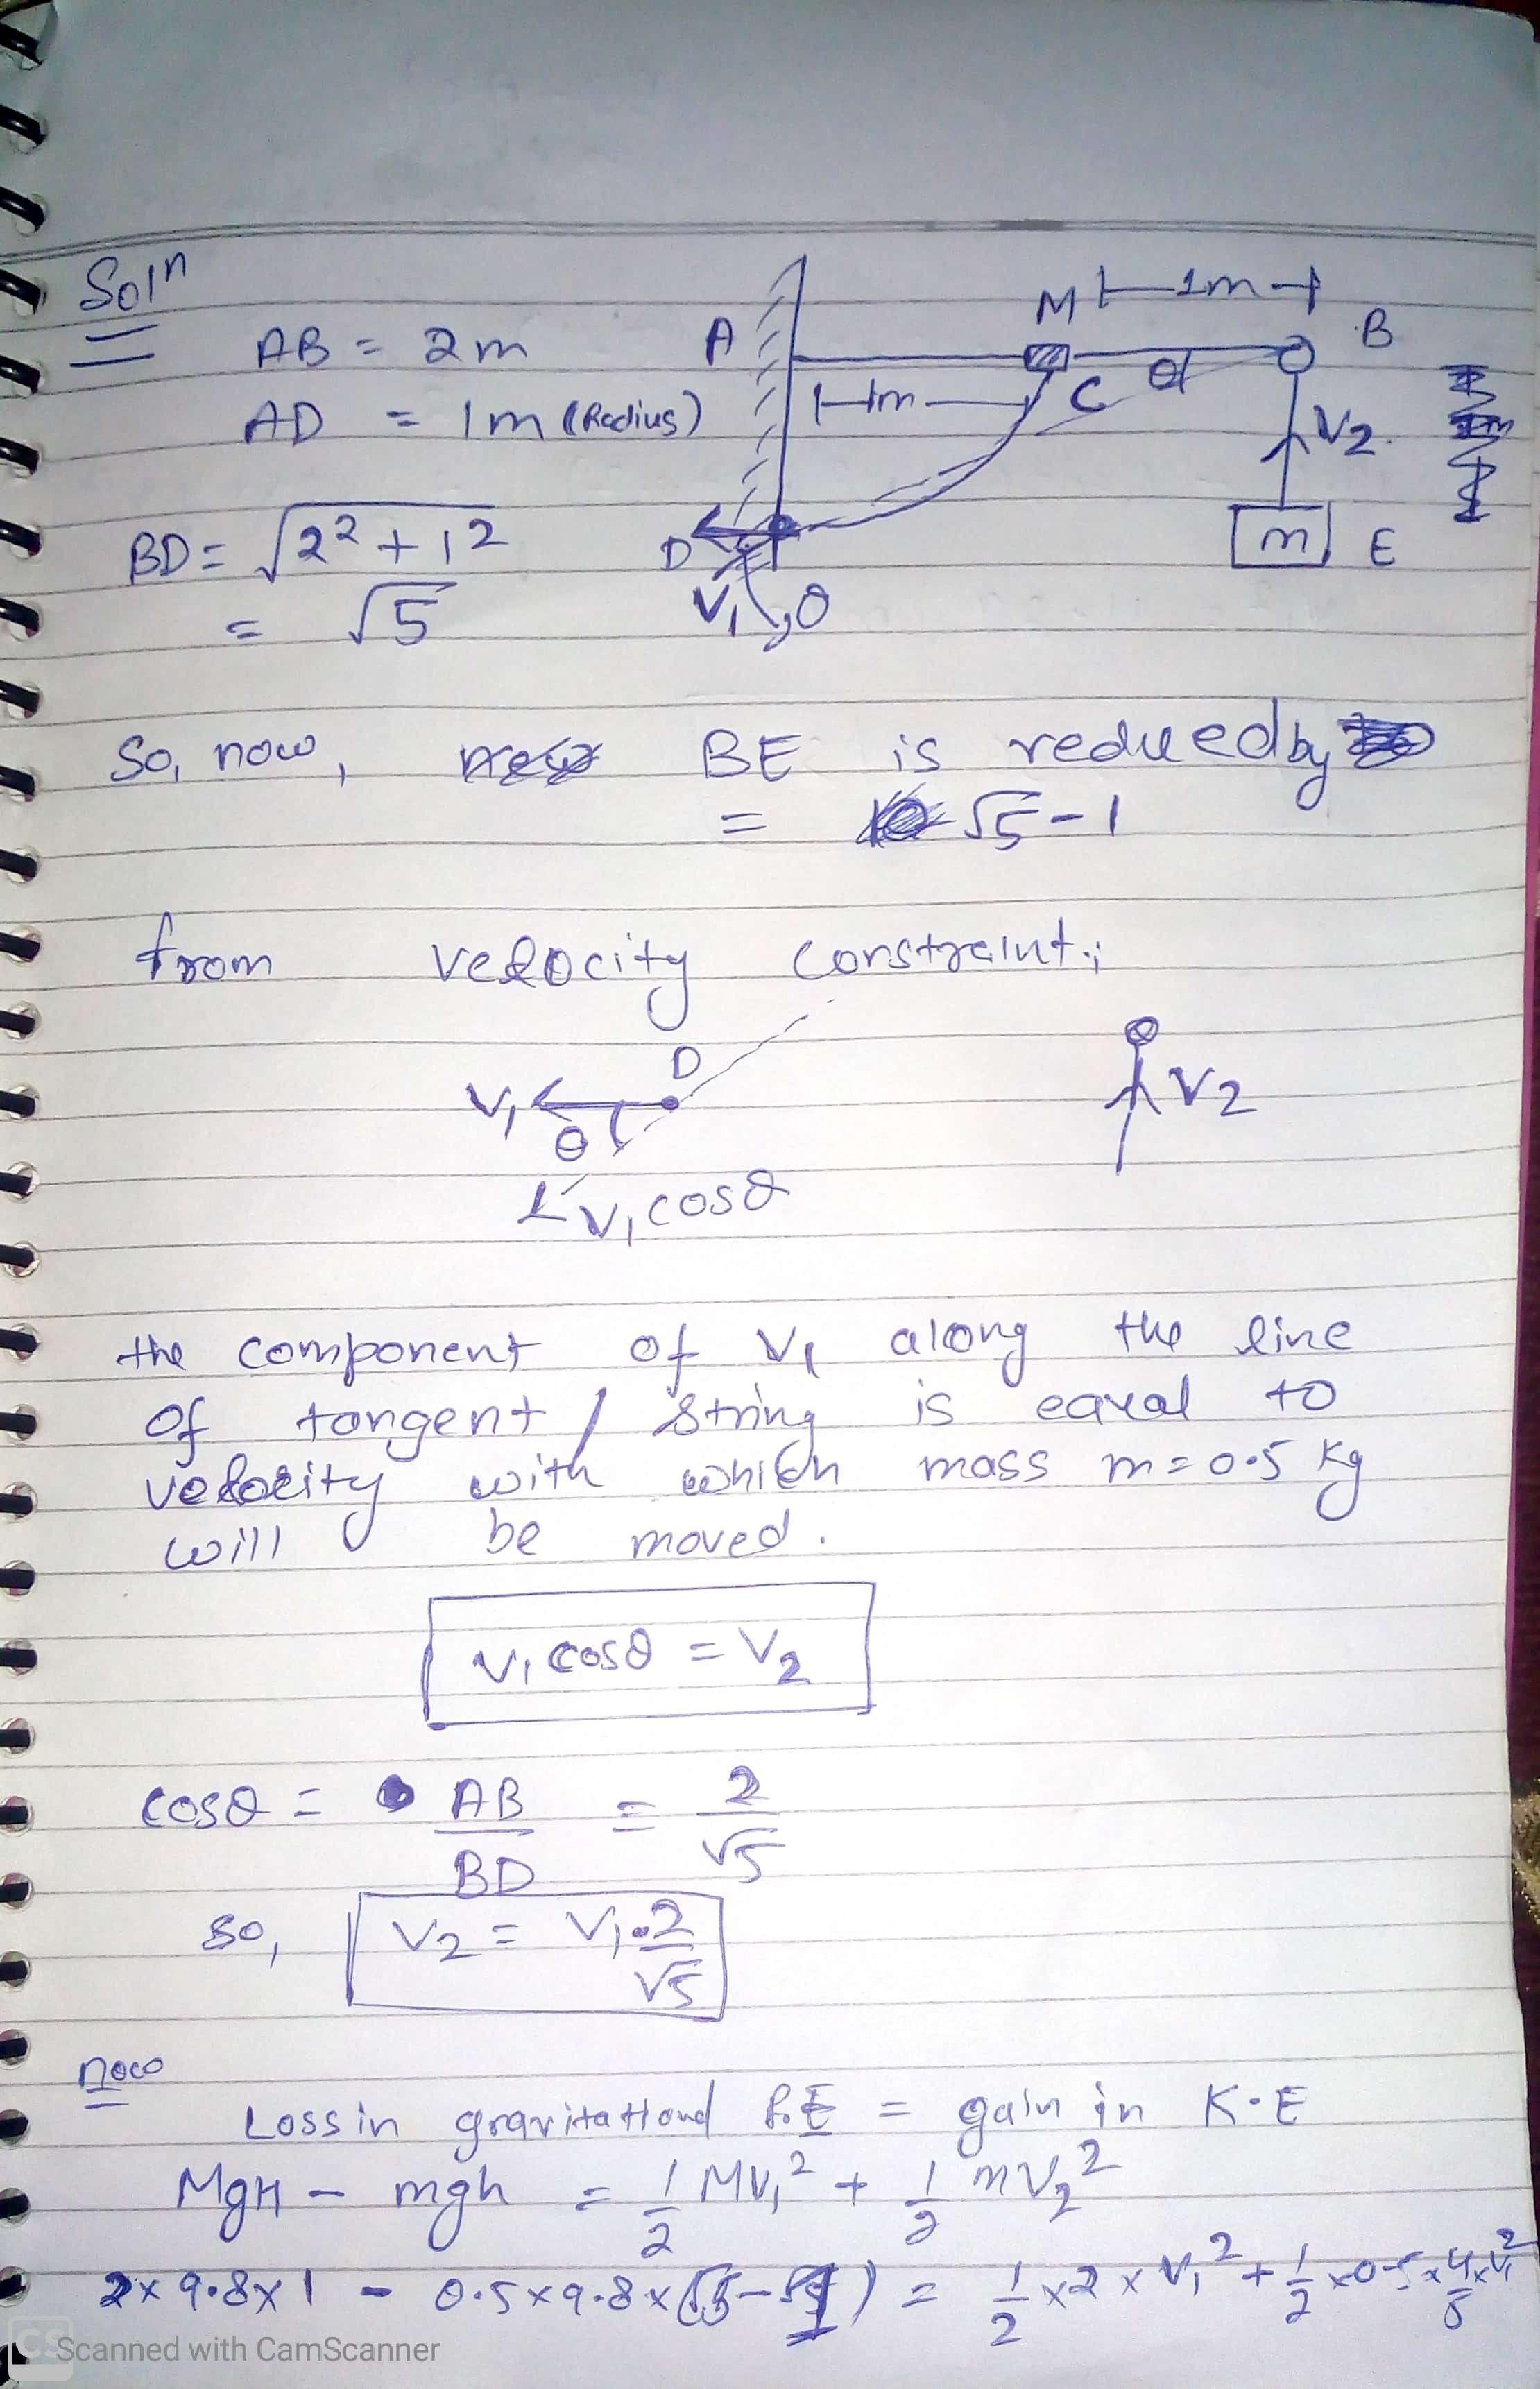 Soln
AB = 2m
AD = 1m (Radius)
BD = √2² + 1²
= √5
A
M
1m
B
1m
C
θ
V2
D
V1
θ
m
E
So, now, BE is reduced by
= √5 - 1
from velocity constraint;
D
V1
θ
V1 cosθ
V2
the component of V1 along the line
of tangent / string is equal to
velocity with which mass m = 0.5 kg
will be moved.
V1 cosθ = V2
cosθ = AB/BD = 2/√5
so, V2 = V1·2/√5
now
Loss in gravitational P.E = gain in K.E
MgH - mgh = 1/2 MV1² + 1/2 mV2²
2 x 9.8 x 1 - 0.5 x 9.8 x (√5 - 1) = 1/2 x 2 x V1² + 1/2 x 0.5 x 4/5 x V1²
CS Scanned with CamScanner